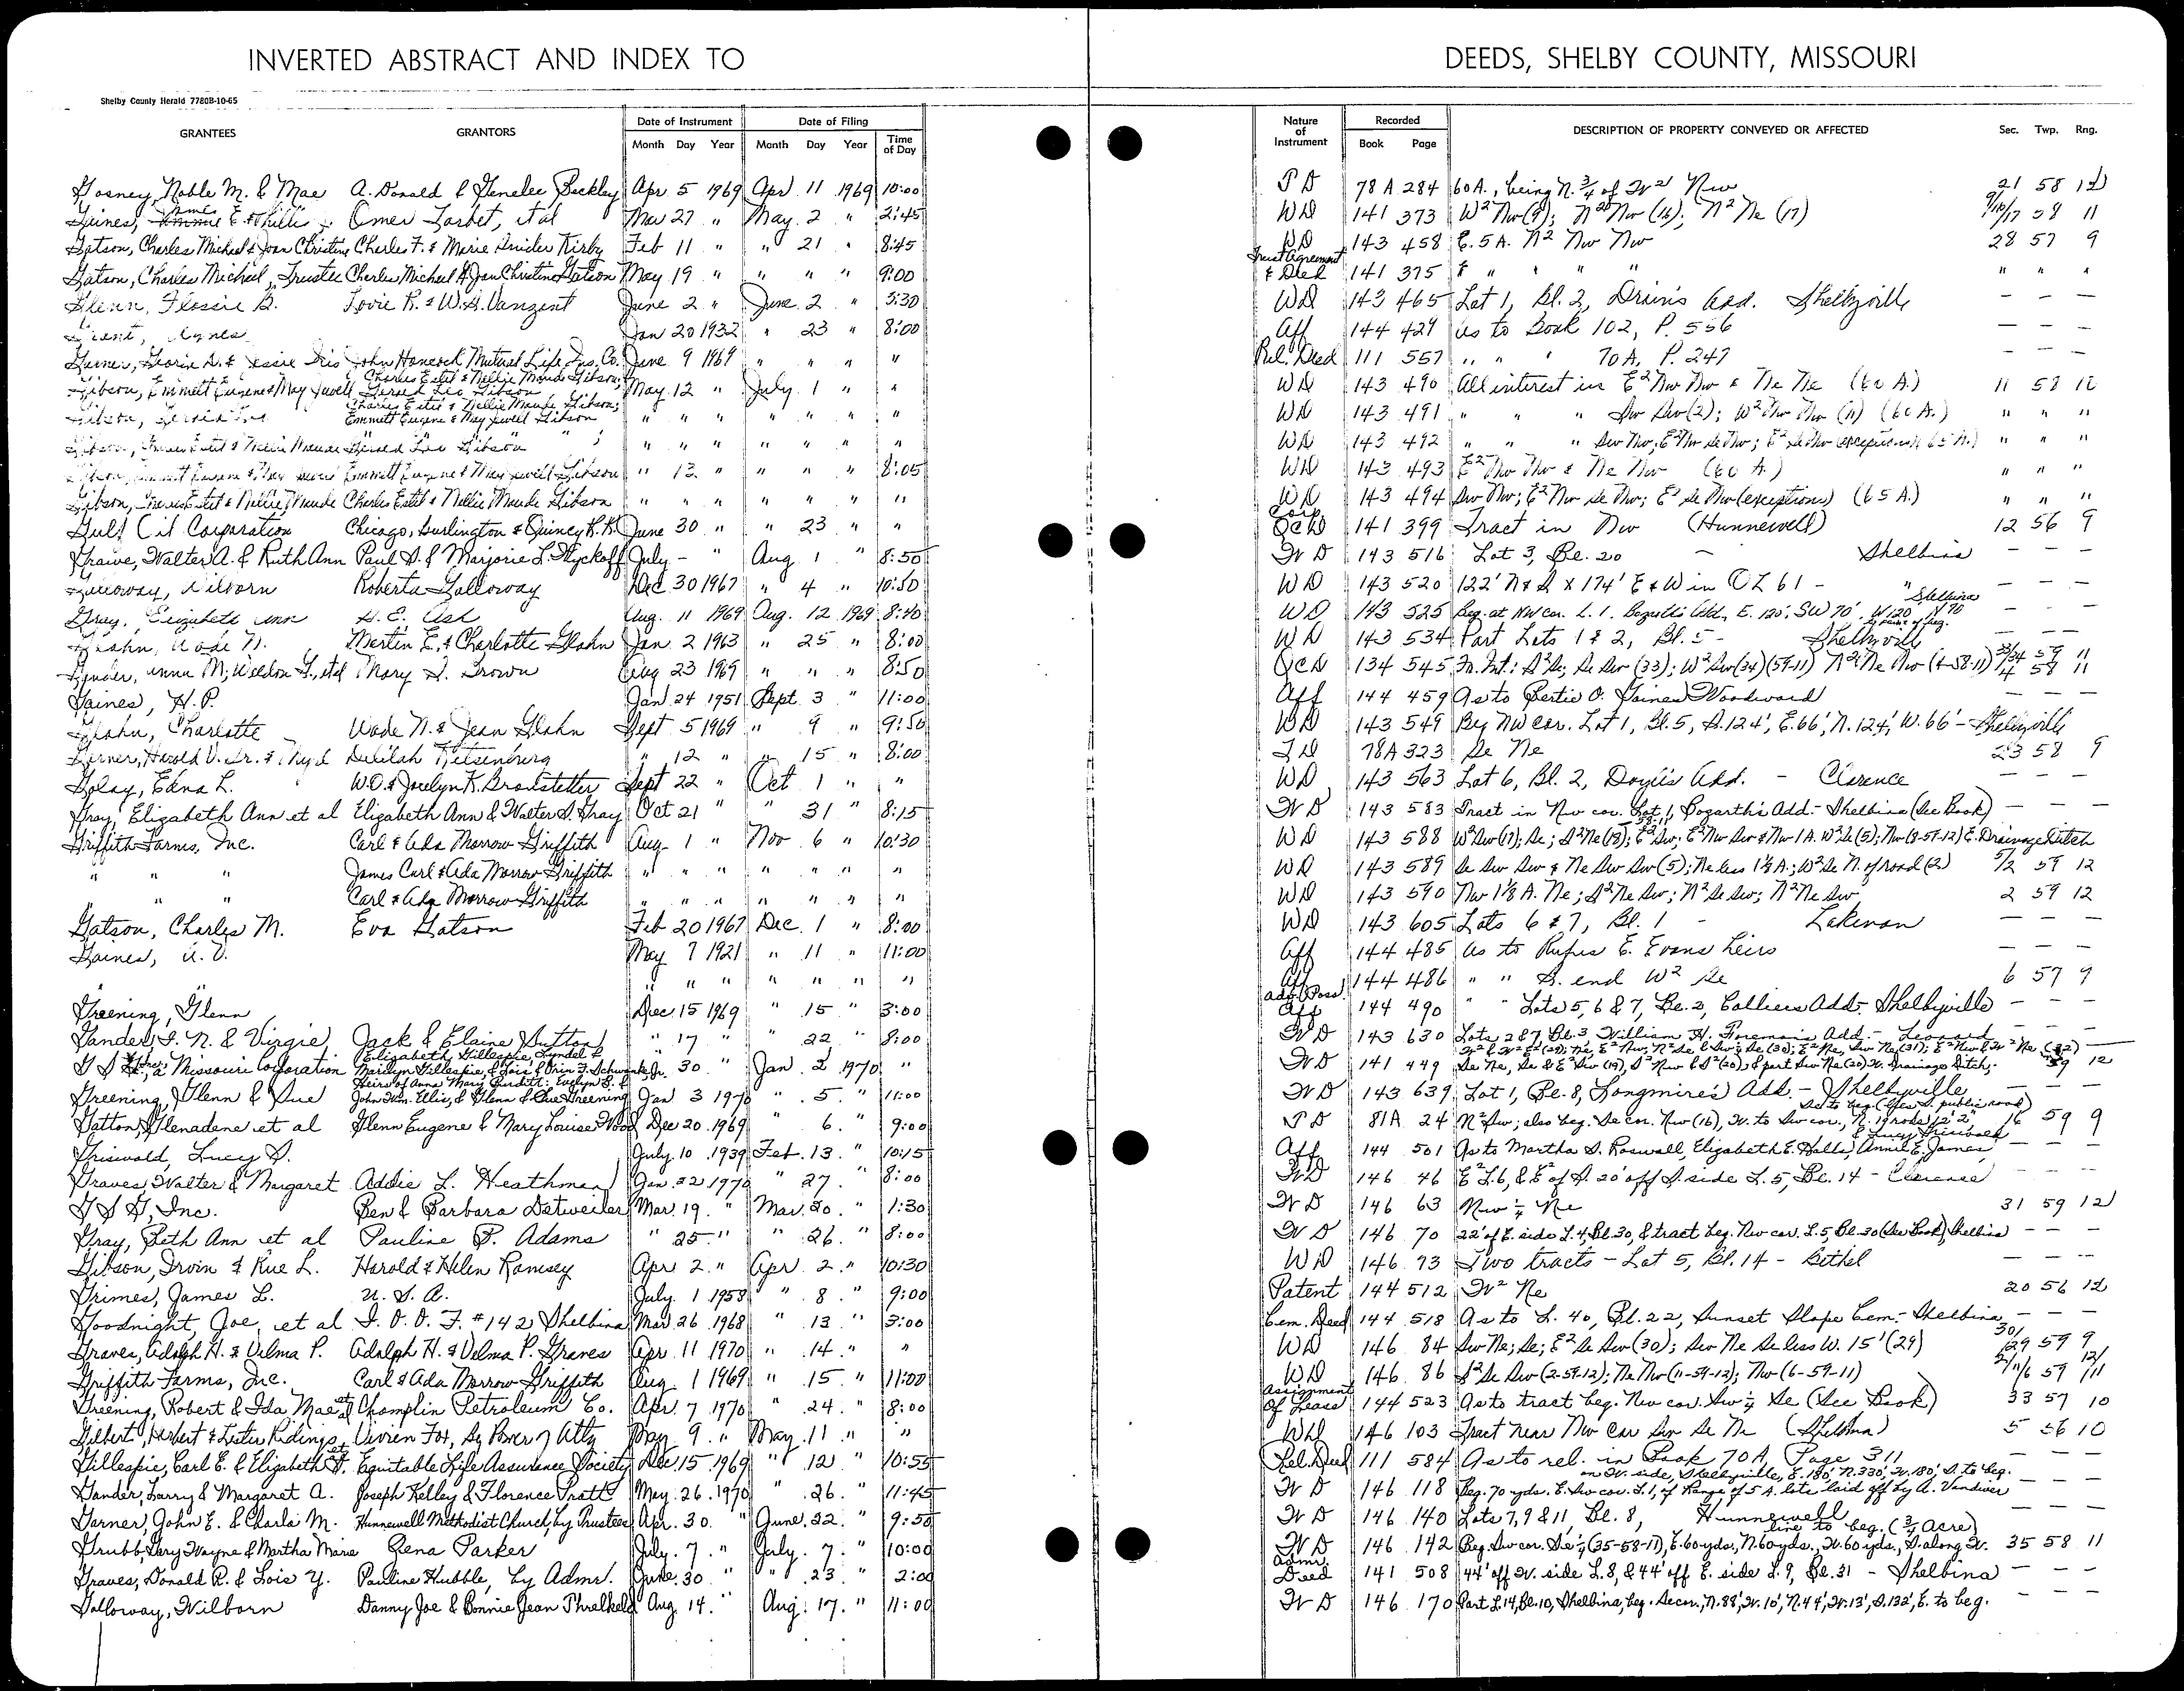 INVERTED ABSTRACT AND INDEX TO DEEDS, SHELBY COUNTY, MISSOURI
Shelby County Herald 7780B-10-65
GRANTEES GRANTORS Date of Instrument Date of Filing Time of Day Nature of Instrument Recorded DESCRIPTION OF PROPERTY CONVEYED OR AFFECTED Sec. Twp. Rng.
Month Day Year Month Day Year Book Page
Gosney, Noble M. & Mae A. Donald & Genelee Beckley Apr 5 1969 Apr 11 1969 10:00 TD 78A 284 60 A., being N. 3/4 of W2 Nw 21 58 12
Gaines, E & Phillis Omer Tarbet, et al Mar 27 " May 2 " 2:45 WD 141 373 W2 Nw (9); Nw (16); N2 Ne (17) 9/16/17 58 11
Gatson, Charles Michael & Joan Christine Charles F. & Marie Snider Kirby Feb 11 " " 21 " 8:45 WD 143 458 E. 5 A. N2 Nw Nw 28 57 9
Gatson, Charles Michael, Trustee Charles Michael & Joan Christine Gatson May 19 " " " " 9:00 Trust Agreement & Deed 141 375 " " " " " " "
Glenn, Flossie B. Lovie R. & W.H. Vanzant June 2 " June 2 " 3:30 WD 143 465 Lot 1, Bl. 2, Drain's Add. Shelbyville — — —
Grant, Agnes Jan 20 1932 " 23 " 8:00 Aff 144 429 As to Book 102, P. 556 — — —
Garner, & Jessie Iris John Hancock Mutual Life Ins. Co. June 9 1969 " " " " Rel. Deed 111 557 " " " 70A, P. 247 — — —
Gibson, Emmett Eugene & May Jewell Charles Estil & Nellie Maude Gibson; Gerald Leo Gibson May 12 " July 1 " " WD 143 490 All interest in E2 Nw Nw & Ne Nw (60 A.) 11 58 12
Gibson, Gerald Leo Charles Estil & Nellie Maude Gibson; Emmett Eugene & May Jewell Gibson " " " " " " " WD 143 491 " " " Sw Sw (2); W2 Nw Nw (11) (60 A.) " " "
Gibson, Charles Estil & Nellie Maude Gerald Leo Gibson " " " " " " " WD 143 492 " " " Sw Nw; E2 Nw Se Nw; E2 Se Nw (exceptions) (65 A.) " " "
Gibson, Emmett Eugene & May Jewell Emmett Eugene & May Jewell Gibson " 13 " " " " 8:05 WD 143 493 E2 Nw Nw & Ne Nw (60 A.) " " "
Gibson, Charles Estil & Nellie Maude Charles Estil & Nellie Maude Gibson " " " " " " " WD 143 494 Sw Nw; E2 Nw Se Nw; E2 Se Nw (exceptions) (65 A.) " " "
Gulf Oil Corporation Chicago, Burlington & Quincy R.R. June 30 " " 23 " " Corp. QCD 141 399 Tract in Nw (Hunnewell) 12 56 9
Grawe, Walter A. & Ruth Ann Paul S. & Marjorie L. Wyckoff July — " Aug 1 " 8:50 WD 143 516 Lot 3, Bl. 20 — Shelbina — — —
Galloway, Wilborn Roberta Galloway Dec 30 1967 " 4 " 10:50 WD 143 520 122' N & S x 174' E & W in OL 61 — " — — —
Gray, Elizabeth Ann H. E. Ash Aug. 11 1969 Aug. 12 1969 8:40 WD 143 525 Beg. at NW cor. L. 1, Bogarth's Add., E. 120', SW 70', W. 120', N 70 to point of beg. Shelbina — — —
Glahn, Wade N. Mertin E. & Charlotte Glahn Jan. 2 1963 " 25 " 8:00 WD 143 534 Part Lots 1 & 2, Bl. 5 - Shelbyville — — —
Gander, Anna M; Weldon G., et al Mary S. Brown Aug 23 1969 " " " 8:50 QCD 134 545 Int.: S2 Se; Se Sw (33); W2 Sw (34) (59-11) N2 Ne Nw (4-58-11) 33/34 59 11 4 58 11
Gaines, H. P. Jan 24 1951 Sept. 3 " 11:00 Aff 144 459 As to Bertie O. Gaines Woodward — — —
Glahn, Charlotte Wade N. & Jean Glahn Sept 5 1969 " 9 " 9:50 WD 143 549 Bg NW cor. Lot 1, Bl. 5, S. 124', E. 66', N. 124', W. 66' - Shelbyville
Garner, Harold V. Sr. & Delilah Ritsenburg " 12 " " 15 " 8:00 TD 78A 323 Se Ne 23 58 9
Golay, Edna L. W.O. & Jocelyn K. Bradstetter Sept 22 " Oct 1 " " WD 143 563 Lot 6, Bl. 2, Doyle's Add. - Clarence — — —
Gray, Elizabeth Ann et al Elizabeth Ann & Walter S. Gray Oct 21 " " 31 " 8:15 WD 143 583 Tract in Nw cor. Lot 1, Bogarth's Add. - Shelbina (See Book) — — —
Griffith Farms, Inc. Carl & Ada Morrow Griffith Aug. 1 " Nov 6 " 10:30 WD 143 588 W2 Sw (17); Se; S2 Ne (18); E2 Sw; E2 Nw Sw & Nw 1 A. W2 Se (5); Nw (8-59-12) E. Drainage Ditch
" " " James Carl & Ada Morrow Griffith " " " " " " " WD 143 589 Se Sw Sw & Ne Sw Sw (5); Ne less 1 1/8 A.; W2 Se N. of road (2) 5/2 59 12
" " " Carl & Ada Morrow Griffith " " " " " " " WD 143 590 Nw 1 1/8 A. Ne; S2 Ne Sw; N2 Se Sw; N2 Ne Sw 2 59 12
Gatson, Charles M. Eva Gatson Feb 20 1967 Dec. 1 " 8:00 WD 143 605 Lots 6 & 7, Bl. 1 - Lakenan — — —
Gaines, U. V. May 7 1921 " 11 " 11:00 Aff 144 485 As to Rufus E. Evans heirs — — —
" " " " " " " Aff 144 486 " " S. end W2 Se 6 57 9
Greening, Glenn Dec. 15 1969 " 15 " 3:00 Adv. Poss. Aff 144 490 " " Lots 5, 6 & 7, Bl. 2, Colliers Add. - Shelbyville — — —
Gander, I. N. & Virgie Jack & Elaine Sutton " 17 " " 22 " 8:00 WD 143 630 Lots 2 & 7, Bl. 3, William H. Foreman's Add. - Leonard
G S a Missouri Corporation Elizabeth Gillespie, Lyndel & Marilyn Gillespie, & Lois & Orin F. Schwanke, Jr. " 30 " Jan. 2 1970 " WD 141 449 Se Ne, Se & E2 Sw (19), S2 Nw & S2 (20) & part Sw Ne (20) W. Drainage Ditch. 59 12
Greening, Glenn & Sue Heirs of Anna Mary Burditt: Evelyn S. & John Wm. Ellis, & Glenn & Sue Greening Jan 3 1970 " 5. " 11:00 WD 143 639 Lot 1, Bl. 8, Longmire's Add. - Shelbyville — — —
Gatton, Glenadene et al Glenn Eugene & Mary Louise Wood Dec 20. 1969 " 6. " 9:00 TD 81A 24 N2 Sw; also beg. Se cor. Nw (16), W. to Sw cor., N. 19 rods, 12' 2" 16 59 9
Griswold, Lucy S. July 10 1939 Feb. 13. " 10:15 Aff 144 501 As to Martha S. Roswall, Elizabeth E. Halls, Annie E. James & Lucy Griswold — — —
Graves, Walter & Margaret Addie L. Heathman Jan. 22 1970 " 27. " 8:00 WD 146 46 E2 L. 6, & E2 of S. 20' off S. side L. 5, Bl. 14 - Clarence — — —
G S G, Inc. Ben & Barbara Detweiler Mar. 19. " Mar. 20. " 1:30 WD 146 63 Nw 1/4 Ne 31 59 12
Gray, Beth Ann et al Pauline P. Adams " 25. " " 26. " 8:00 WD 146 70 22' of E. side L. 4, Bl. 30, & tract beg. Nw cor. L. 5, Bl. 30 (See Book) Shelbina — — —
Gibson, Irvin & Rue L. Harold & Helen Ramsey Apr 2. " Apr. 2. " 10:30 WD 146 73 Two tracts - Lot 5, Bl. 14 - Bethel — — —
Grimes, James L. U. S. A. July. 1 1958 " 8 " 9:00 Patent 144 512 W2 Ne 20 56 12
Goodnight, Joe, et al I. O. O. F. #142 Shelbina Mar 26 1968 " 13 " 3:00 Cem. Deed 144 518 As to L. 40, Bl. 22, Sunset Slope Cem. - Shelbina — — —
Graves, Adolph H. & Velma P. Adolph H. & Velma P. Graves Apr. 11 1970 " 14. " " WD 146 84 Sw Ne; Se; E2 Se Sw (30); Sw Ne Se less W. 15' (29) 30/29 59 9
Griffith Farms, Inc. Carl & Ada Morrow Griffith Aug. 1 1969 " 15 " 11:00 WD 146 86 S2 Se Sw (2-59-12); Ne Nw (11-59-12); Nw (6-59-11) 2/11/6 59 12/11
Greening, Robert & Ida Mae et al Champlin Petroleum Co. Apr. 7 1970 " 24. " 8:00 Assignment of Lease 144 523 As to tract beg. Nw cor. Sw 1/4 Se (See Book) 33 57 10
Gilbert, Herbert & Lester Ridings, et Vivien Fox, By Power of Atty May 9. " May. 11 " " WD 146 103 Tract near Nw cor Sw Se Ne (Shelbina) 5 56 10
Gillespie, Carl E. & Elizabeth Equitable Life Assurance Society Dec. 15 1969 " 12 " 10:55 Rel. Deed 111 584 As to rel. in Book 70A, Page 311
Gander, Larry & Margaret A. Joseph Kelley & Florence Pratt May. 26. 1970 " 26. " 11:45 WD 146 118 Beg. 70 yds. E. Sw cor. L. 1, of Range of 5 A. lots laid off by A. Vandiver on W. side, Shelbyville, E. 180', N. 330', W. 180', S. to beg. — — —
Garner, John E. & Charla M. Hunnewell Methodist Church, by Trustees Apr. 30. " June. 22. " 9:50 WD 146 140 Lots 7, 9 & 11, Bl. 8, Hunnewell — — —
Grubb, Gary Wayne & Martha Marie Rena Parker July. 7. " July. 7. " 10:00 WD 146 142 Beg. Sw cor. Se 1/4 (35-58-11), E. 60 yds., N. 60 yds., W. 60 yds., S. along W. line to beg. (3/4 Acre) 35 58 11
Graves, Donald R. & Lois Y. Pauline Hubble, by Admr. June. 30 " " 23 " 2:00 Admr. Deed 141 508 44' off W. side L. 8, & 44' off E. side L. 9, Bl. 31 - Shelbina — — —
Galloway, Wilborn Danny Joe & Bonnie Jean Threlkeld Aug. 14. " Aug. 17. " 11:00 WD 146 170 Part L. 14, Bl. 10, Shelbina, beg. Se cor., N. 88', W. 10', N. 44', W. 13', S. 132', E. to beg. — — —